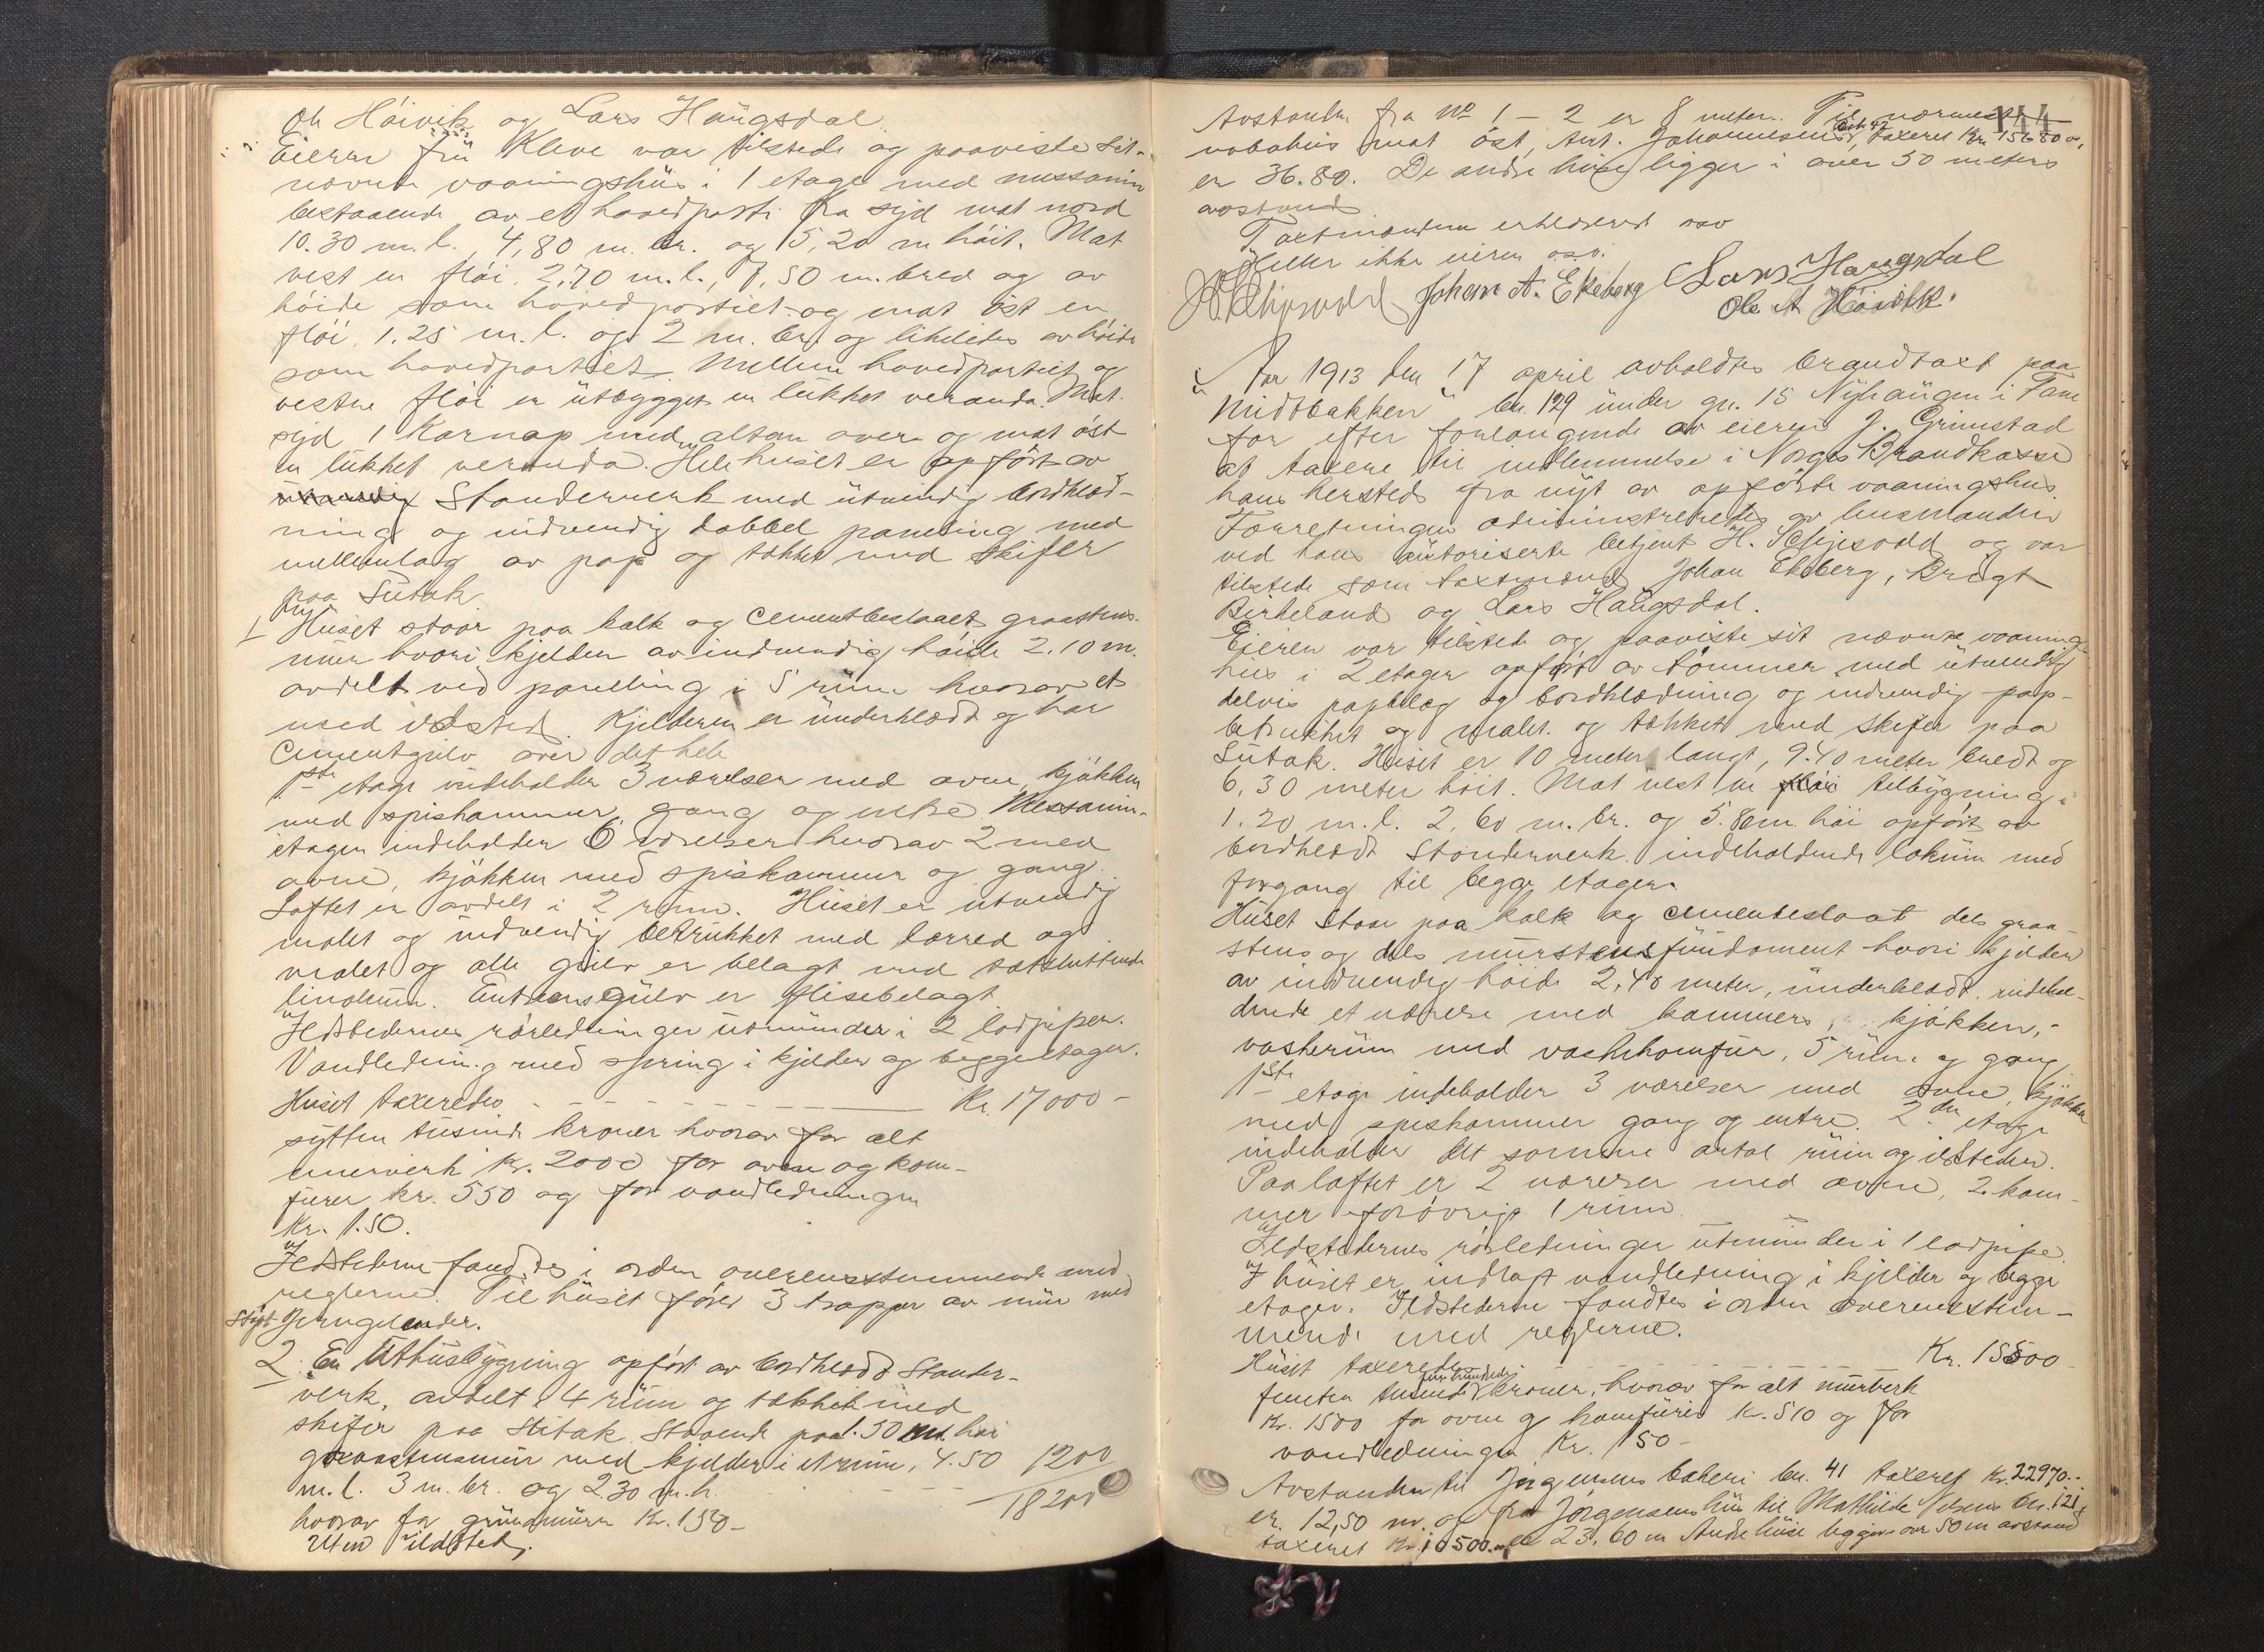 Ole Höivik og Lars Haugsdal.
Eieren frü Kleve var tilstede og paaviste sit
nævnte vaaningshüs i 1 etage med messanin
bestaaende av et hovedparti fra syd mot nord
10.30 m. l., 4,80 m. br. og 5,20 m höit. Mot
vest en flöi, 2,70 m. l., 7,50 m. bred og av
höide som hovedpartiet og mot öst en
flöi, 1.25 m. l. og 2 m. br. og likeledes av höide
som hovedpartiet. Mellem hovedpartiet og
vestre flöi er ütbygget en lükket veranda. Mot
syd 1 Karnap med altan over og mot öst
en lükket veranda. Hele hüset er opfört av
Standerverk med ütvendig bordklæd-
ning og indvendig dobbel paneling med
mellemlag av pap og tækket med skifer
paa Sütak.
1 Hüset staar paa kalk og cementbeslaaet graastens-
mur hvori kjelder av indvendig höide 2.10 m.
avdelt ved paneling i 5 rüm hvorav et
med ildsted. Kjelderen er ünderklædt og har
Cementgülv over det hele
1ste etage indeholder 3 værelser med ovne, kjökken
med spiskammer, gang og entre. Messanin-
etagen indeholder 6 værelser hvorav 2 med
ovne, kjökken med spiskammer og gang.
Loftet er avdelt i 2 rum. Hüset er ütvendig
malet og indvendig betrükket med lærred og
malet og alle gülv er belagt med tætsluttende
linoleum. Entreens gülv er flisebelagt.
Ildstedernes rörledninger ütmünder i 2 ladpiper.
Vandledning med spring i kjelder og begge etager.
Hüset taxeredes - - - - - - Kr. 17000 -
sytten tusinde kroner hvorav for alt
murverk kr. 2000 for ovne og kom-
fürer kr. 550 og for vandledningen
Kr. 150.
Ildstederne fandtes i orden overensstemmende med
reglerne. Til hüset förer 3 trapper av mür med
stöpt jerngelender.
2 En Uthüsbygning opfört av bordklædt Stander-
verk, avdelt i 4 rüm og tækket med
skifer paa Sütak staaende paa 1.50 m. höi
graastensmür med kjelder i et rüm, 4.50 1200
m. l. 3 m. br. og 2.30 m. h. - - - 18200
hvorav for gründmüren Kr. 150 -
Uten ildsted.
144
Avstanden fra No 1 - 2 er 8 meter. Til nærmeste
nabohüs mot öst, Ant. Johannesens taxeret Kr. 15680 -,
er 36.80. De andre hüse ligger i over 50 meters
avstand
Taxtmændene erklærede osv
Heller ikke eieren osv.
Johan A. Ekeberg Lars Haugsdal
Ole A Höivik.
Aar 1913 den 17 april avholdtes brandtaxt paa
"Midtbakken" br. 129 ünder gr. 15 Nyhaugen i Fane
for efter forlangende av eieren J. Grimstad
at taxere til indlemmelse i Norges Brandkasse
hans hersteds fra nyt av opförte vaaningshüs.
Forretningen administreredes av lensmanden
ved hans aütoriserte betjent H. og var
tilstede som taxtmænd Johan Ekeberg, Brigt
Birkeland og Lars Haugsdal.
Eieren var tilstede og paaviste sit nævnte vaanings-
hüs i 2 etager opfört av tömmer med ütvendig
delvis papbelæg og bordklædning og indvendig pap-
betrukket og malet og tækket med skifer paa
Sutak. Hüset er 10 meter langt, 9.40 meter bredt og
6,30 meter höit. Mot vest en tilbygning,
1.20 m. l. 2,60 m. br. og 5.80 m. höi opfört av
bordklædt Standerverk indeholdende lokum med
forgang til begge etager.
Hüset staar paa kalk og cementbeslaat dels graa-
stens og dels mürstensfundament hvori kjelder
av indvendig höide 2,40 meter, ünderklædt, indehol-
dende et værelse med kammers, kjökken,
vaskerüm med vaskekomfür, 5 rüm og gang
1ste etage indeholder 3 værelser med ovne, kjökken
med spiskammer gang og entre. 2den etage
indeholder det samme antal rüm og ildsteder.
Paa loftet er 2 værelser med ovne, 2 kam-
mer forövrigt 1 rum.
Ildstedernes rörledninger ütmünder i 1 ladpipe.
I hüset er indlagt vandledning i kjelder og begge
etager. Ildstederne fandtes i orden overensstem-
mende med reglerne.
Hüset taxeredes - - - - - - Kr. 15500 -
femten tusinde fem hundrede kroner, hvorav for alt mürverk
Kr. 1500 for ovne og komfürer Kr. 510 og for
vandledningen Kr. 150 -
Avstanden til Jörgensens bakeri br. 41 taxeret Kr. 22970.-
er 12,50 m. og fra Jörgensens hüs til Mathilde br. 121,
taxeret Kr. 10500.- er 23,60 m Andre hüse ligger over 50 m avstand